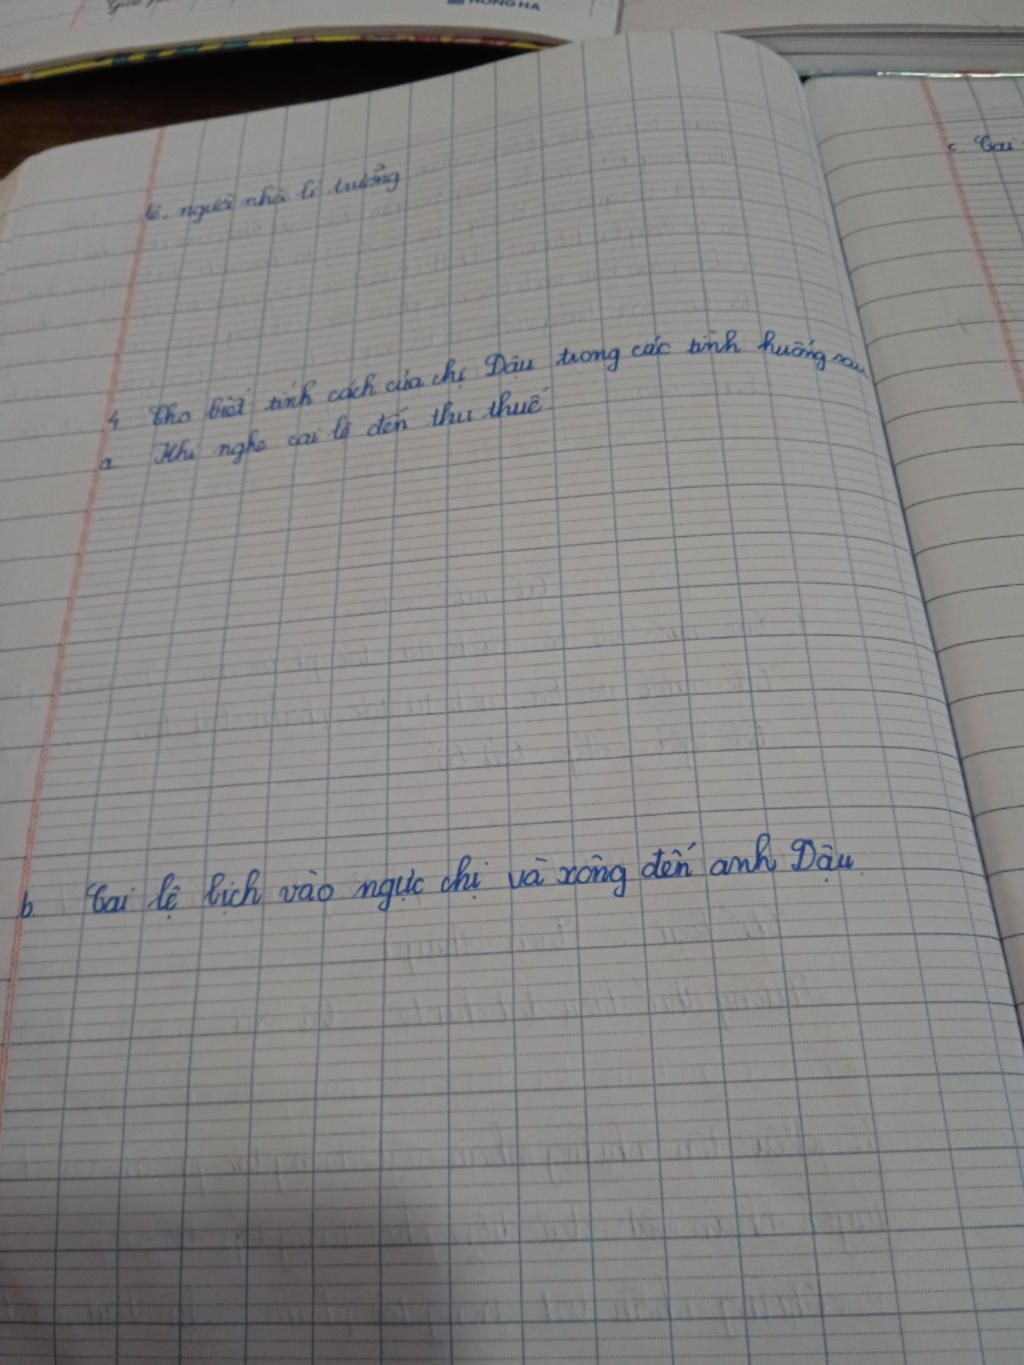 HONG HA
lệ, người nhà lí trưởng
4 Cho biết tính cách của chị Dậu trong các tình huống sau
a Khi nghe cai lệ đến thu thuế
b Cai lệ bịch vào ngực chị và xông đến anh Dậu
c Cai